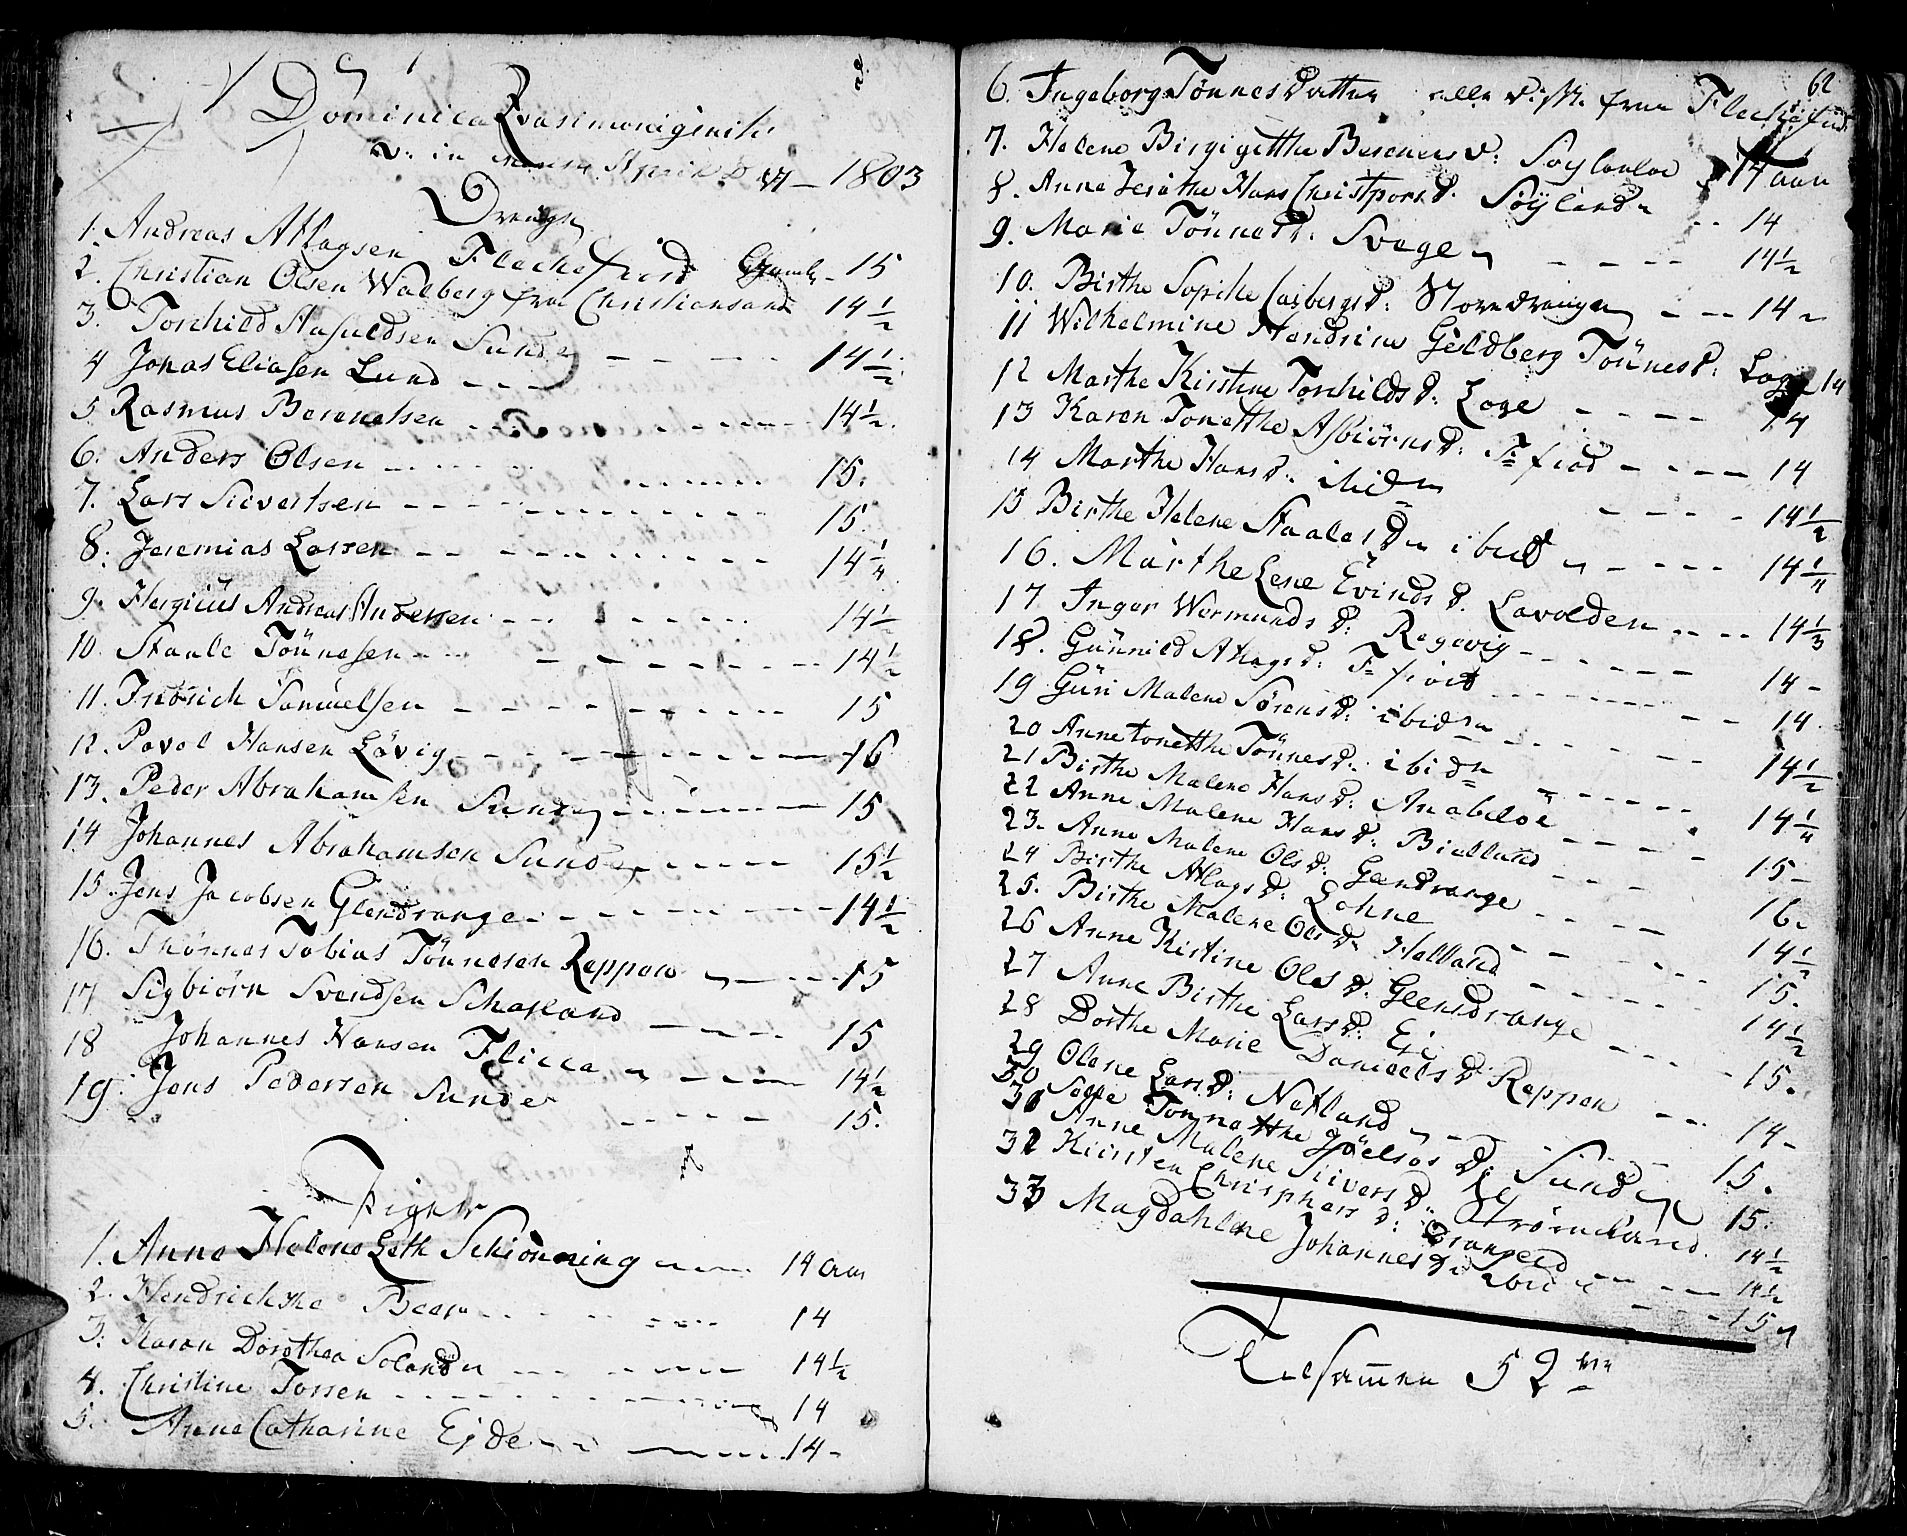 Dominica Qvasimodogeniti
1803
Drenge
1. Andreas Atlagsen Fleckefiord Gamle - 15
2. Christian Olsen Walberg fra Christiansand 14 1/2
3. Torkild Aasuldsen Sunde - - - - 14 1/2.
4 Jonas Eliasen Lund - - - 14 1/2.
5 Rasmus Berentsen
6. Anders Olsen - - - 15.
7. Lars Sivertsen - - - 15.
8. Jeremias Larsen - - - 14 1/4
9. Andreas Andersen - - - 14 1/2
10. Staale Tönnesen - - - 14 1/2
11. Fridrich Samuelsen - - - 15
12. Povel Hansen Lövig - - - 16
13. Peder Abrahamsen Sunde - - - 15
14 Johannes Abrahamsen Sunde - - - 15 1/2
15. Jens Jacobsen Glendrange - - - 14 1/2
16. Thönnes Tobias Tönnesen Reppen - - - 15
17 Sigbiörn Svendsen Schafland - - - 15
18 Johannes Hansen Flicca - - - 14 1/2
19. Jens Pedersen Sunde - - - 15.
Piger
1. Anne Helene Leth Schiönning - - - 14 Aar
2. Hendrichke Beer - - - 14
3. Karen Dorothea Soland - - - 14 1/2
4. Christine Torsen - - - 14
5. Anne Catharine Ejde - - - 14 -
62
6. Ingeborg Tönnes Datter alle disse fra Fleckefiord
7. Helene Birgigitthe Berents D: Söyland 14 aar
8. Anne Hans Christophers D. Söyland - - 14
9. Marie Tönnes D: Svege - - - 14 1/2
10. Birthe Sophie D: Stordrange - - - 14
11 Wilhelmine Hendrine Geldberg Tönnes D: Loge 14
12 Marthe Kirstine Torkilds D: Loge - - - 14
13 Karen Tonetthe Asbiörns D: Fl fiod - - - 14
14 Marthe Hans D: ibid - - - 14 1/2
15 Birthe Helene Staales D ibid - - - 14 1/4
16. Marthe Lene Evinds D. Lavolden - - - 14 1/3
17 Inger Wermunds D: Regevig - - - 14 -
18. Gunnild Atlags D: Fl fiord - - - 14
19 Guri Malene Sörens D: ibid - - - 14 1/2
20 Anne tonetthe Tönnes D: ibid - - - 14 1/4
21 Birthe Malene Hans D: Anabelöe - - - 15 -
22 Anne Malene Hans D: Bielland - - - 16.
23. Anne Malene Ols D: Glendrange - - - 14 1/2
24 Birthe Atlags D: Lohne - - - 15.
25. Birthe Malene Ols D Helland - - - 14 1/2
26 Anne Kistine Ols D: Glendrange - - - 15.
27 Anne Birthe Lars D: Eie - - - 14 -
28 Dorthe Marie Daniels D Reppen - - - 15.
29 Olene Lars D: Netland - - - 15.
30 Tonnetthe Joels D: Sunde
31 Anne Malene Sivers D: Strömsland. 14 1/2
32 Kirsten Chrisphers D: Drangeid - - - 14 1/2
33 Magdahlene Johannes D: ibid - - - 15
Tilsammen 52